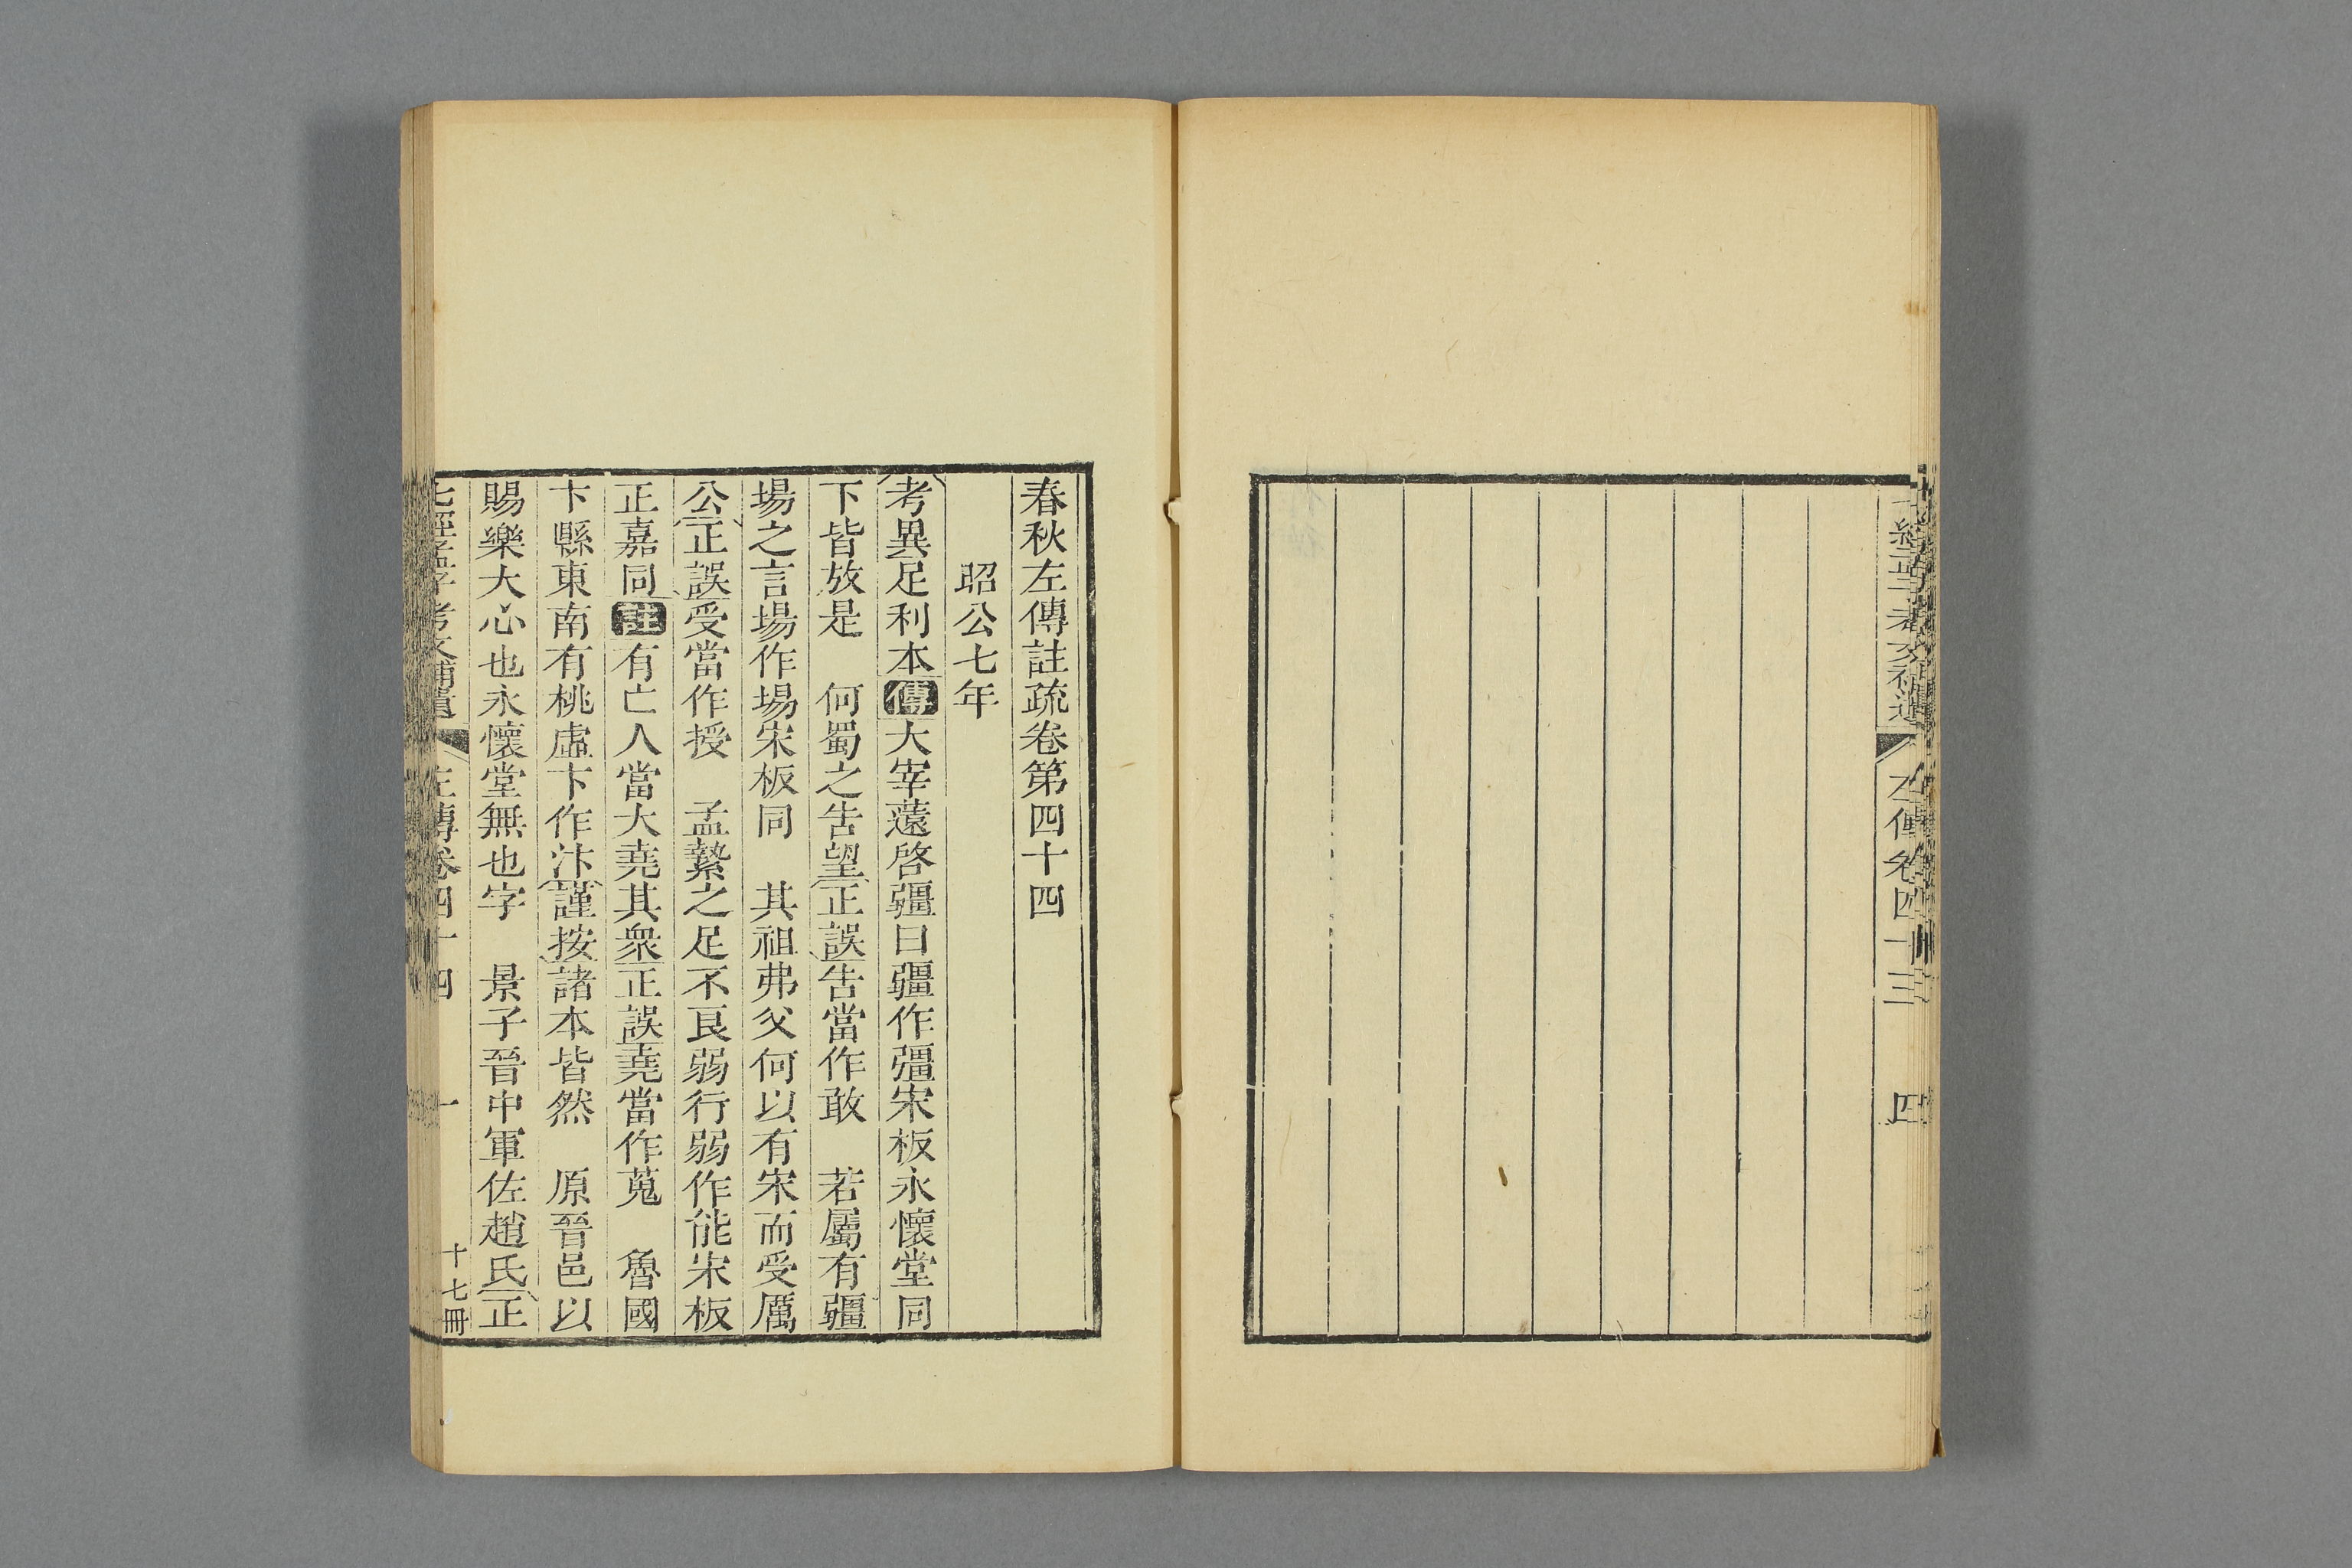 左傳卷四十三 四
春秋左傳註疏卷第四十四
昭公七年
考異足利本傳大宰薳啓疆曰疆作彊宋板永懷堂同
下皆放是 何蜀之告望正誤告當作敢 若屬有疆
場之言場作場宋板同 其祖弗父何以有宋而受厲
公正誤受當作授 孟縶之足不良弱行弱作能宋板
正嘉同註有亡人當大蕘其衆正誤蕘當作蒐 魯國
卞縣東南有桃虛卞作汴謹按諸本皆然 原晉邑以
賜樂大心也永懷堂無也字 景子晉中軍佐趙氏正
七經孟子考文補遺 左傳卷四十四 一 十七冊